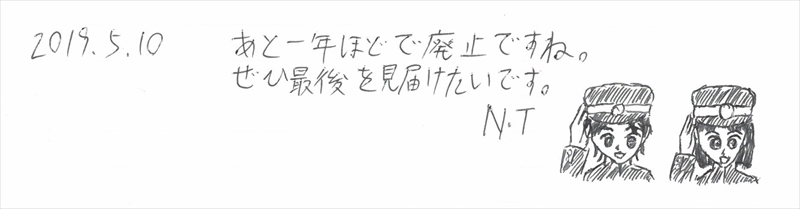 2019.5.10 あと一年ほどで廃止ですね。
ぜひ最後を見届けたいです。
N.T